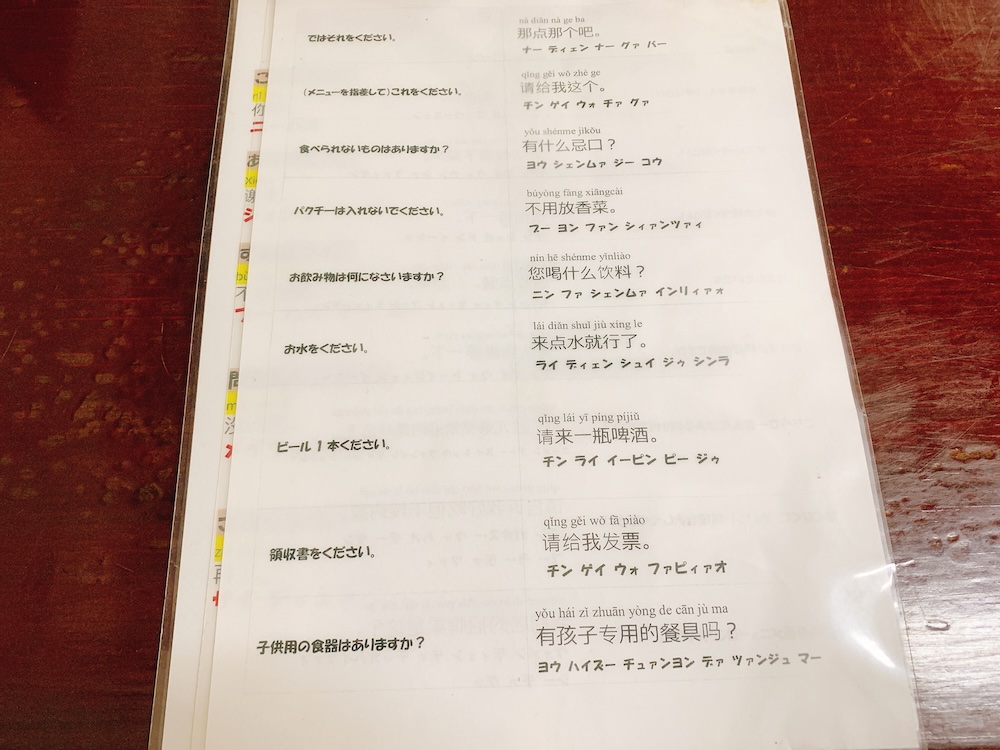 ではそれをください。
nà diǎn nà ge ba
那点那个吧。
ナー ディェン ナー グァ バー
(メニューを指差して)これをください。
qǐng gěi wǒ zhè ge
请给我这个。
チン ゲイ ウォ チァ グァ
食べられないものはありますか?
yǒu shénme jìkǒu
有什么忌口？
ヨウ シェンムァ ジー コウ
パクチーは入れないでください。
bùyòng fàng xiāngcài
不用放香菜。
ブー ヨン ファン シィァンツァィ
お飲み物は何になさいますか?
nín hē shénme yǐnliào
您喝什么饮料？
ニン ファ シェンムァ インリィァォ
お水をください。
lái diǎn shuǐ jiù xíng le
来点水就行了。
ライ ディェン シュイ ジゥ シンラ
ビール1本ください。
qǐng lái yī píng píjiǔ
请来一瓶啤酒。
チン ライ イーピン ピー ジゥ
領収書をください。
qǐng gěi wǒ fā piào
请给我发票。
チン ゲイ ウォ ファピィァオ
子供用の食器はありますか?
yǒu hái zǐ zhuān yòng de cān jù ma
有孩子专用的餐具吗？
ヨウ ハイズー チュァンヨン デァ ツァンジュ マー